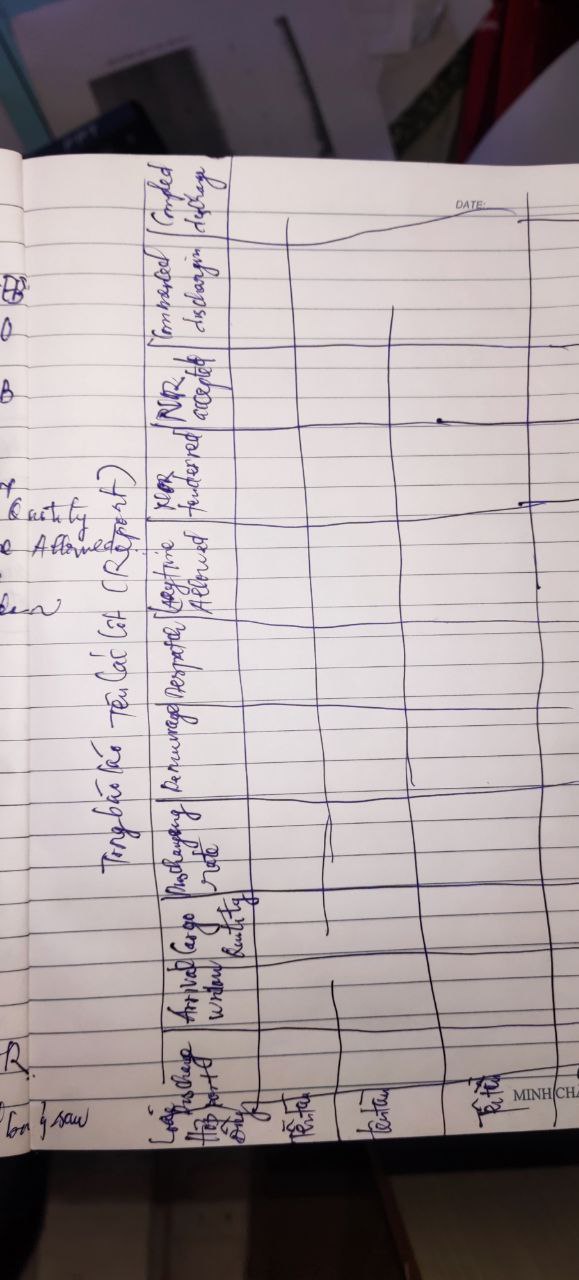 Tong báo cáo Tên các Cột (Report)
Các
Hợp
đồng
Discharge
port
Arrival
Cargo
Quntity
Dischanging
Rate
Demurrage
Despatch
Laytime
Allowed
NOR
tenderred
NOR
accepted
Commenced
dischargin
Compled
discharge
Tên tàu
tên tàu
Tên tàu
Quntity
Allowed
DATE: